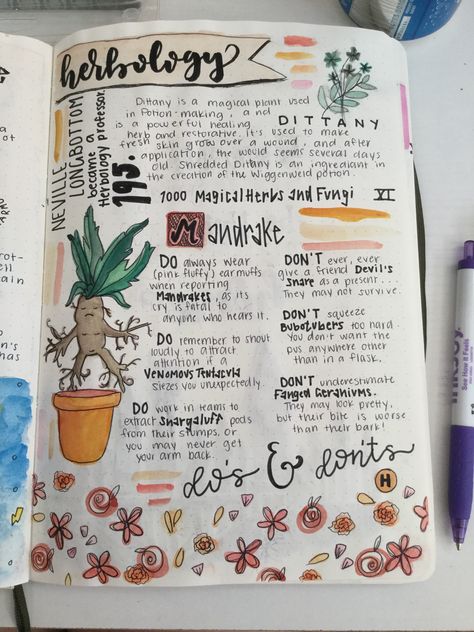 herbology
NEVILLE
LONGBOTTOM
became a
Herbology professor.
195.
Dittany is a magical plant used
in potion-making, and
DITTANY
is a powerful healing
herb and restorative. It's used to make
fresh skin grow over a wound, and after
application, the would seems several days
old. Shredded Dittany is an ingredient in
the creation of the Wiggenweld potion.
1000 Magical Herbs and Fungi XI
Mandrake
DO always wear
(pink fluffy) earmuffs
when reporting
Mandrakes, as its
cry is fatal to
anyone who hears it.
DO remember to shout
loudly to attract
attention if a
Venomous Tentacula
siezes you unexpectedly.
DO work in teams to
extract Snargaluff pods
from their stumps, or
you may never get
your arm back.
DON'T ever, ever
give a friend Devil's
Snare as a present...
They may not survive.
DON'T squeeze
Bubotubers too hard
You don't want the
pus anywhere other
than in a flask.
DON'T underestimate
Fanged Geraniums.
They may look pretty,
but their bite is worse
than their bark!
do's & don'ts
H
See How it Feels